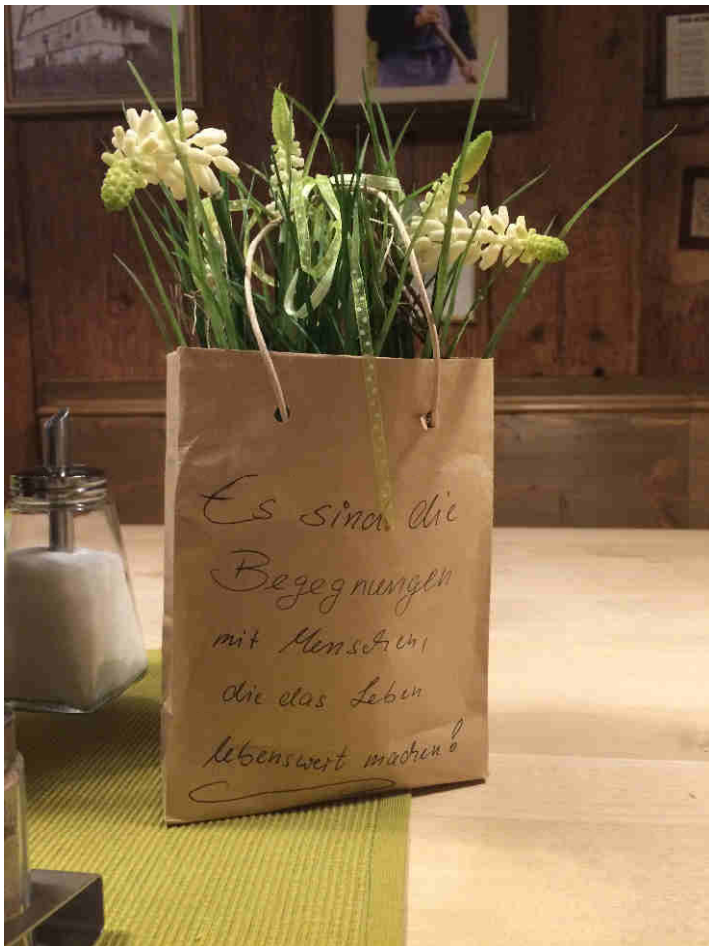 Es sind die
Begegnungen
mit Menschen,
die das Leben
lebenswert machen!